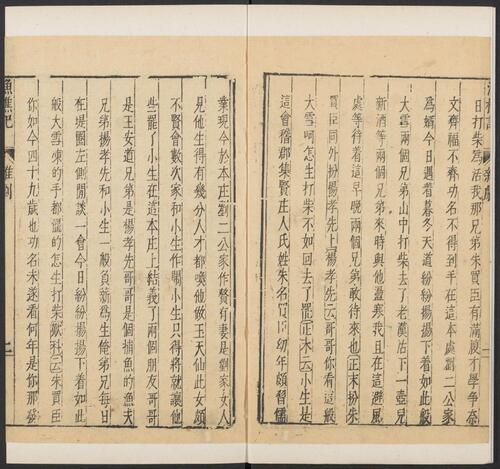 日打柴為活我那兄弟朱買臣有滿腹才學爭奈
文齊福不齊功名不得到手在這本處劉二公家
為婿今日遇着暮冬天道紛紛揚揚下着如此般
大雪兩個兄弟山中打柴去了老漢沽下一壺兒
新酒等兩個兄弟來時與他盪寒我且在這避風
處等待着這早晚兩個兄弟敢待來也正末扮朱
買臣同外扮楊孝先上楊孝先云哥哥你看這般
大雪呵怎生打柴不如回去了罷正末云小生是
這會稽郡集賢庄人氏姓朱名買臣幼年頗習儒
業現今於本庄劉二公家作贅有妻是劉家女人
見他生得有幾分人才都喚他做玉天仙此女頗
不賢會數次家和小生作鬧小生只得將就讓他
些罷了小生在這本庄上結義了兩個朋友哥哥
是王安道兄弟是楊孝先哥哥是個捕魚的漁夫
兄弟楊孝先和小生一般負薪為生俺弟兄每日
在堤圈左側閒談一會今日紛紛揚揚下着如此
般大雪凍的手都僵的怎生打柴歎科云朱買臣
你如今四十九歲也功名未遂看何年是你那發
漁樵記 雜劇 二